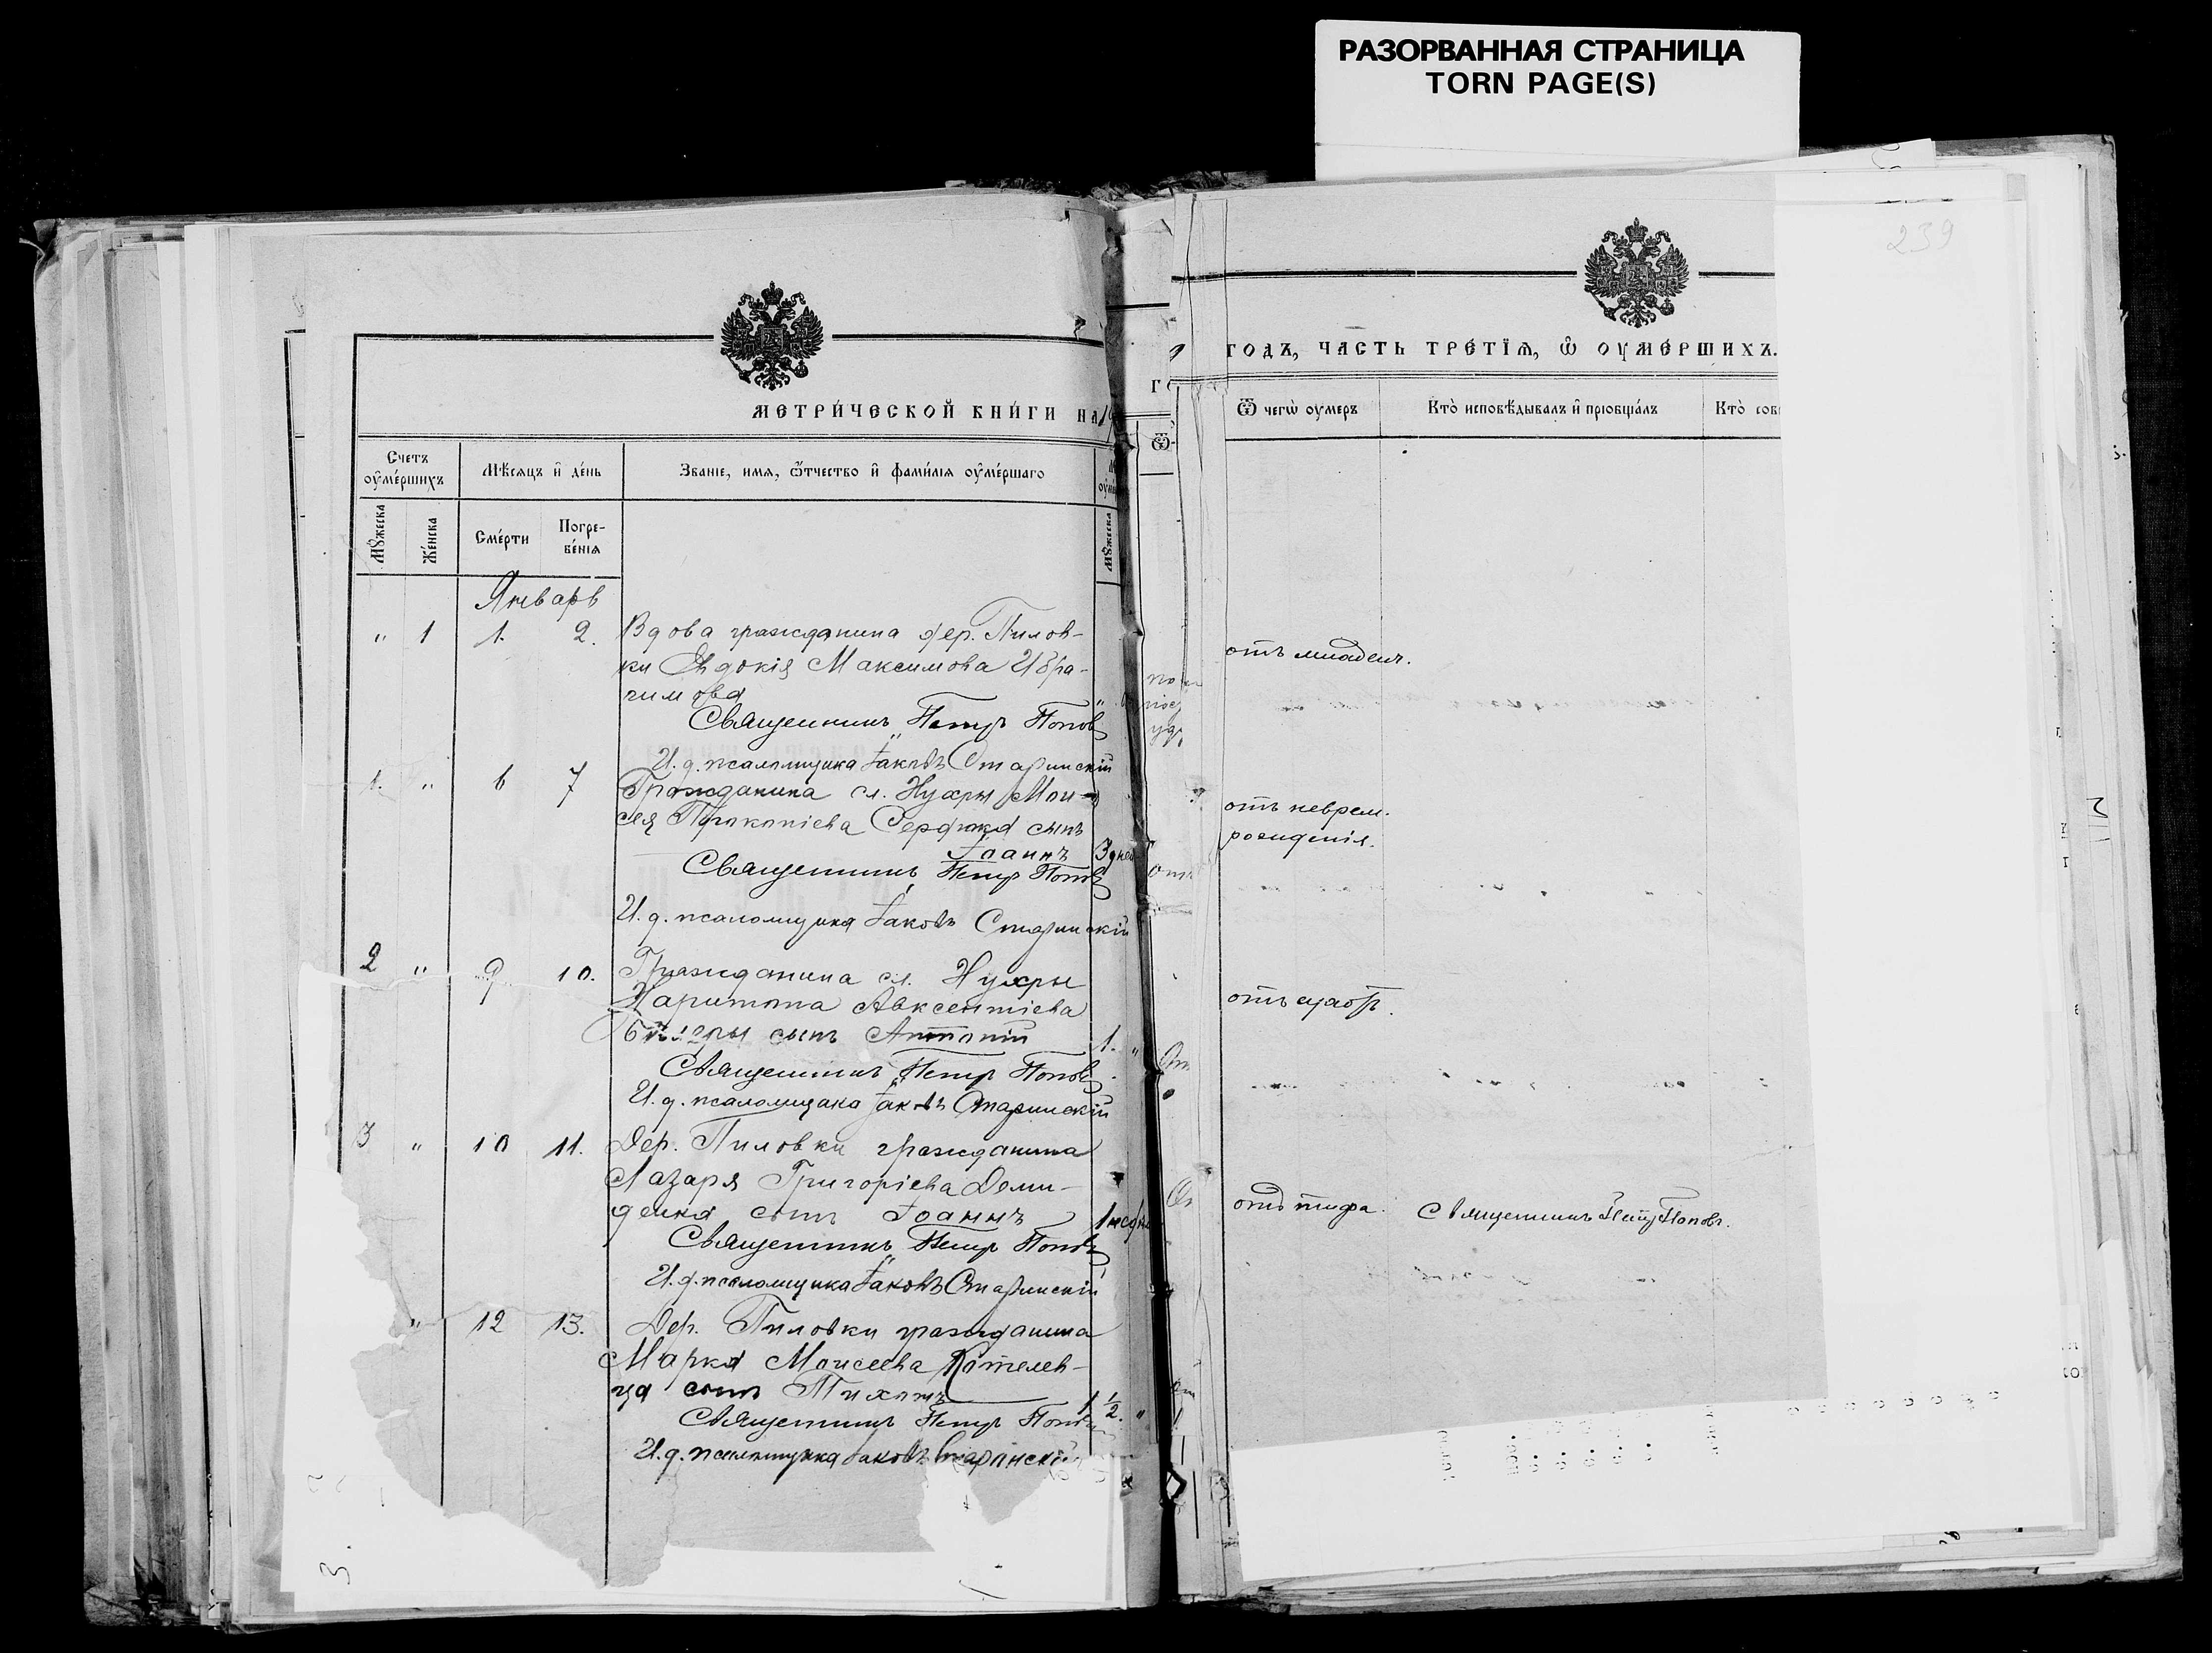 РАЗОРВАННАЯ СТРАНИЦА
TORN PAGE(S)
239
МЕТРИ́ЧЕСКОЙ КНИ́ГИ НА
Счетъ оу҆ме́ршихъ
Мѣ́сяцъ и҆ де́нь
Званіе, имя, ѻ҆́тчество и҆ фами́лія оу҆ме́ршаго
Мꙋ́жеска
Же́нска
Сме́рти
Погре-
бе́нія
Мꙋ́жеска
Январь
" 1 1. 2. Вдова гражданина дер. Пилов-
ки Евдокія Максимова Ибра-
гимова
Священникъ Петръ Поповъ
И. д. псаломщика Іаковъ Старинскій
1. " 6 7 Гражданина сл. Нухры Мои-
сея Прокопіева Сердюка сынъ
Іоаннъ 3 дней
Священникъ Петръ Поповъ
И. д. псаломщика Іаковъ Старинскій
2 " 9 10. Гражданина сл. Нухры
Харитона Авксентіева
сынъ Антоній 1. "
Священникъ Петръ Поповъ
И. д. псаломщика Іаковъ Старинскій
3 " 10 11. Дер. Пиловки гражданина
Лазаря Григоріева Деми-
денка сынъ Іоаннъ
Священникъ Петръ Поповъ
И. д. псаломщика Іаковъ Старинскій
" 12 13. Дер. Пиловки гражданина
Марка Моисеева Котелев-
ца сынъ Тихонъ 1 1/2. "
Священникъ Петръ Поповъ
И. д. псаломщика Іаковъ Старинскій
ГОДЪ, ЧАСТЬ ТРЕ́ТІѦ, Ѽ ОУМЕ́РШИХЪ.
Ѿ чегѡ̀ оумеръ
Кто̀ исповѣ́дывалъ и҆ пріобща́лъ
Кто̀ сов
отъ младенч.
отъ неврем.
рожденія.
отъ тифа. Священникъ Петръ Поповъ.